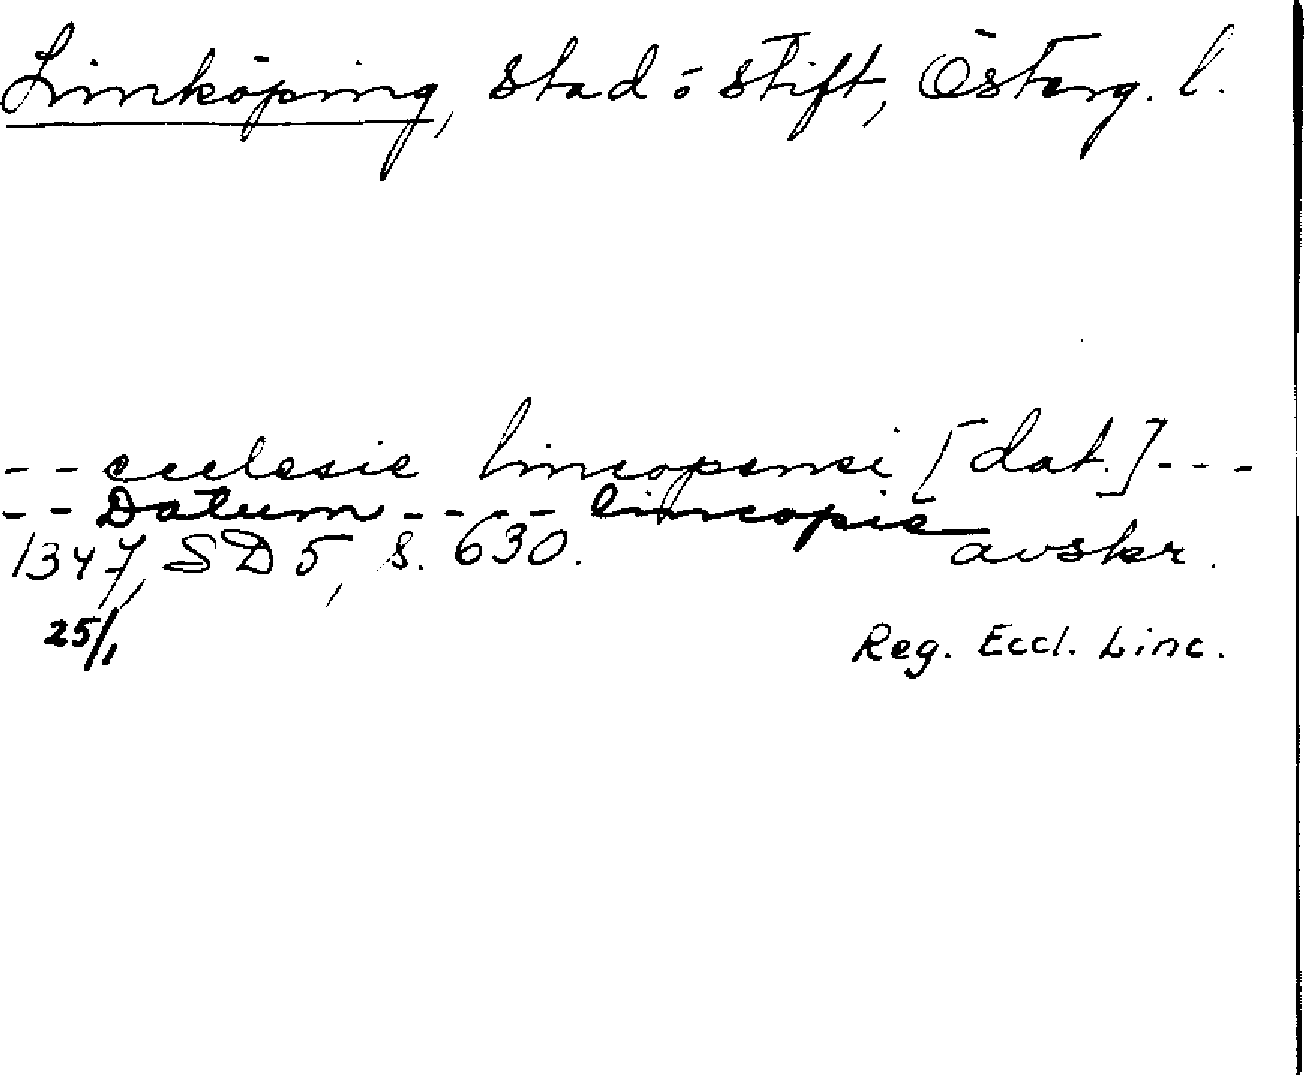 Linköping, stad o stift, Österg. l.
-- ecclesie lincopensi [dat.]---
-- Datum ---- lincopie
1347, SD 5, s. 630. avskr.
25/1 Reg. Eccl. Linc.